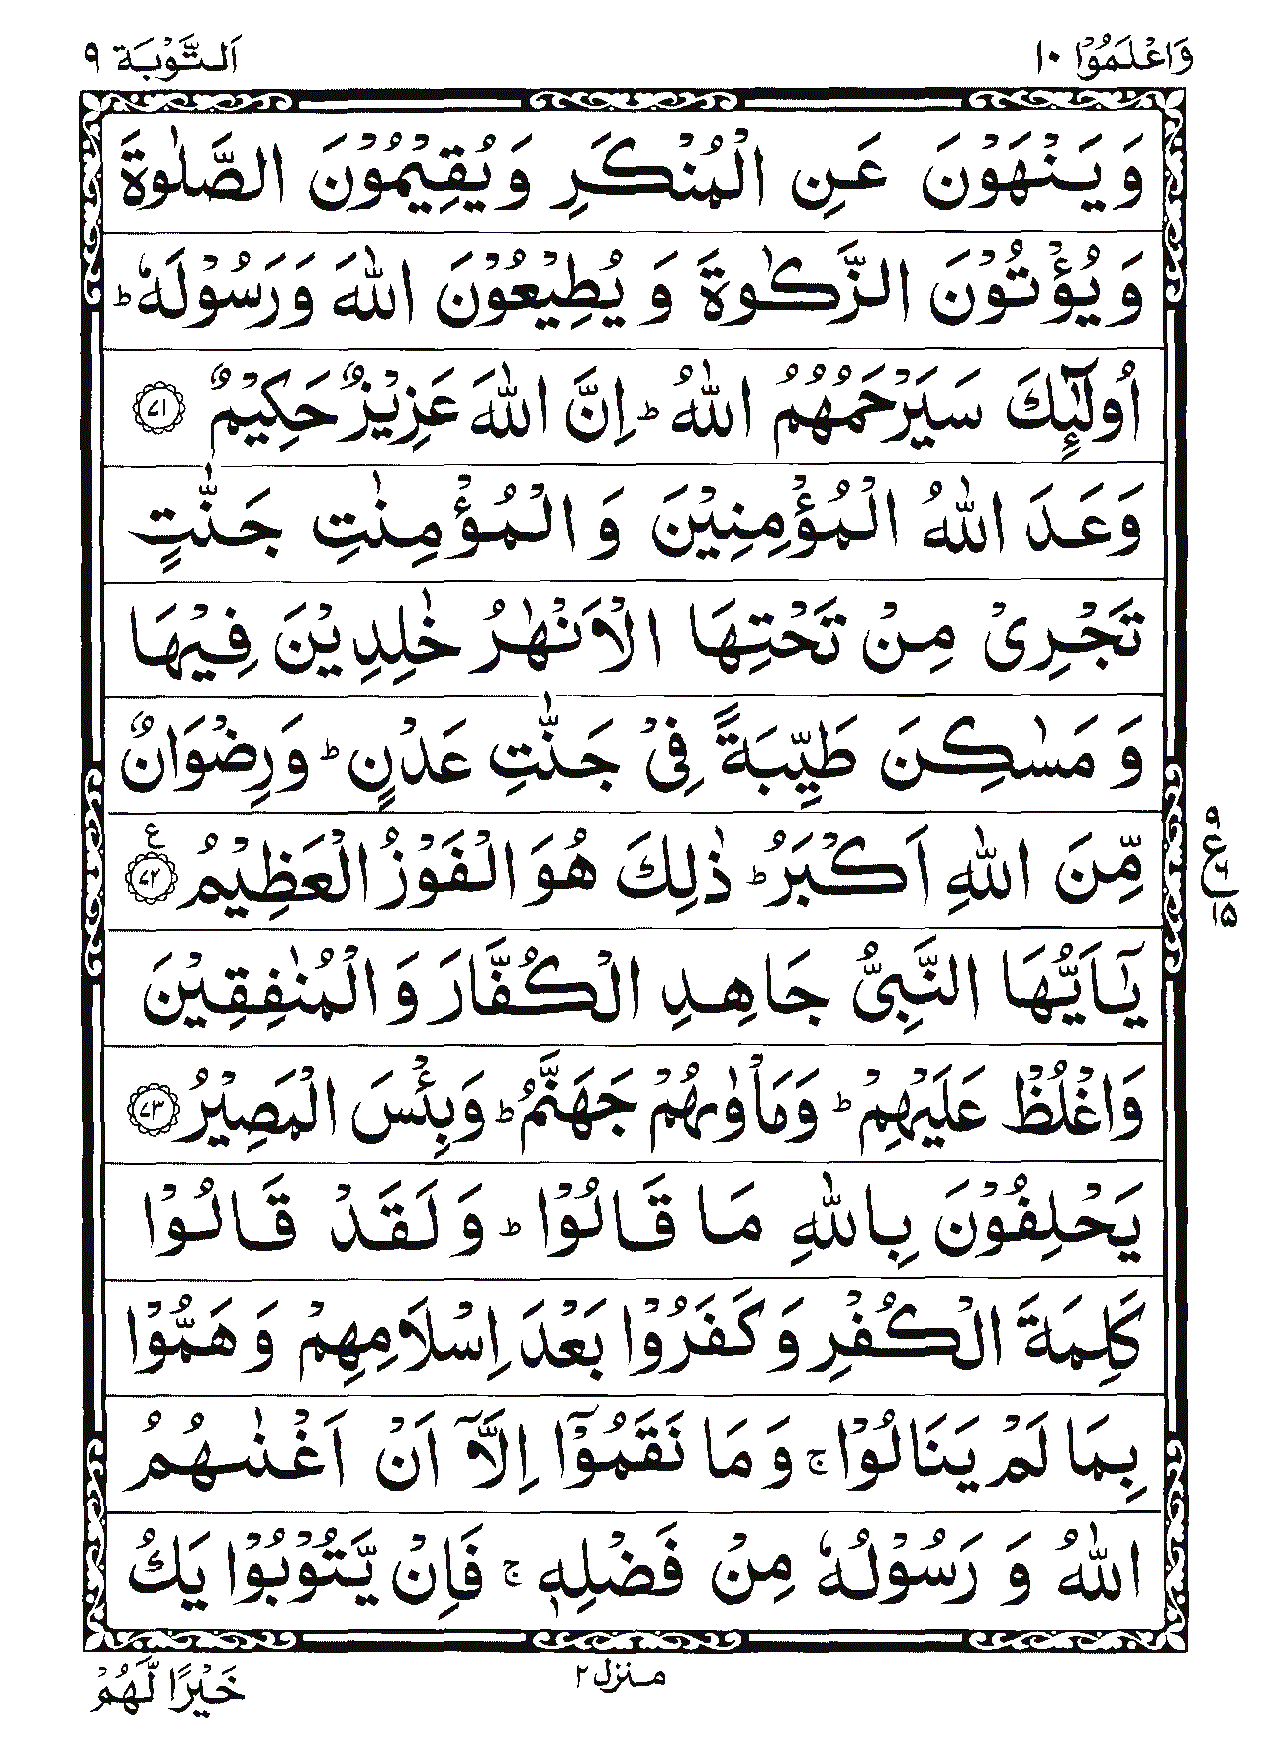 وَاعْلَمُوْٓا ١٠
اَلتَّوْبَة ٩
وَ يَنْهَوْنَ عَنِ الْمُنْكَرِ وَيُقِيْمُوْنَ الصَّلٰوةَ
وَ يُؤْتُوْنَ الزَّكٰوةَ وَ يُطِيْعُوْنَ اللّٰهَ وَرَسُوْلَهٗ ؕ
اُولٰٓئِكَ سَيَرْحَمُهُمُ اللّٰهُ ؕ اِنَّ اللّٰهَ عَزِيْزٌ حَكِيْمٌ ﴿٧١﴾
وَعَدَ اللّٰهُ الْمُؤْمِنِيْنَ وَ الْمُؤْمِنٰتِ جَنّٰتٍ
تَجْرِىْ مِنْ تَحْتِهَا الْاَنْهٰرُ خٰلِدِيْنَ فِيْهَا
وَ مَسٰكِنَ طَيِّبَةً فِىْ جَنّٰتِ عَدْنٍ ؕ وَرِضْوَانٌ
مِّنَ اللّٰهِ اَكْبَرُ ؕ ذٰلِكَ هُوَ الْفَوْزُ الْعَظِيْمُ ﴿٧٢﴾ ع
٩ ع ٦ ١٥
يٰۤاَيُّهَا النَّبِىُّ جَاهِدِ الْكُفَّارَ وَ الْمُنٰفِقِيْنَ
وَاغْلُظْ عَلَيْهِمْ ؕ وَمَاْوٰىهُمْ جَهَنَّمُ ؕ وَبِئْسَ الْمَصِيْرُ ﴿٧٣﴾
يَحْلِفُوْنَ بِاللّٰهِ مَا قَالُوْا ؕ وَ لَقَدْ قَالُوْا
كَلِمَةَ الْكُفْرِ وَ كَفَرُوْا بَعْدَ اِسْلَامِهِمْ وَ هَمُّوْا
بِمَا لَمْ يَنَالُوْا ۚ وَ مَا نَقَمُوْۤا اِلَّاۤ اَنْ اَغْنٰىهُمُ
اللّٰهُ وَ رَسُوْلُهٗ مِنْ فَضْلِهٖ ۚ فَاِنْ يَّتُوْبُوْا يَكُ
منزل ٢
خَيْرًا لَّهُمْ